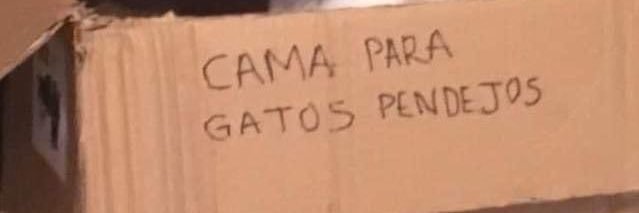 CAMA PARA
GATOS PENDEJOS